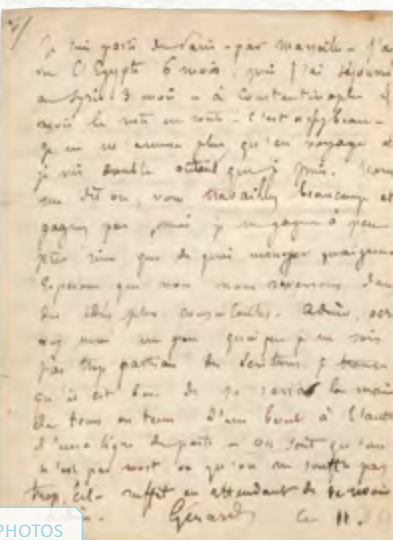 2/
Je suis parti de Paris - par Marseille - J'ai
vu l'Egypte 6 mois ; puis j'ai séjourné
en Syrie 3 mois - à Constantinople 4
mois le reste en route - C'est assez beau -
Je ne m'amuse plus qu'en voyage et
je vis double autant que je puis. Vous
me dit on, vous travaillez beaucoup et
gagnez pas, moi je ne gagne à peu
près rien que de quoi manger quoique
Espérons que nous nous reverrons dans
des idées plus consolantes. Adieu, écr
moi un peu quoique je ne sois
pas trop partisan des lettres je trouve
qu'il est bon de se serrer la main
de tems en tems d'un bout à l'autre
d'une ligne de poste - On sait qu'on
n'est pas mort ou qu'on ne souffre pas
trop. Cela suffit en attendant de se revoir
Gérard Ce 11.
PHOTOS